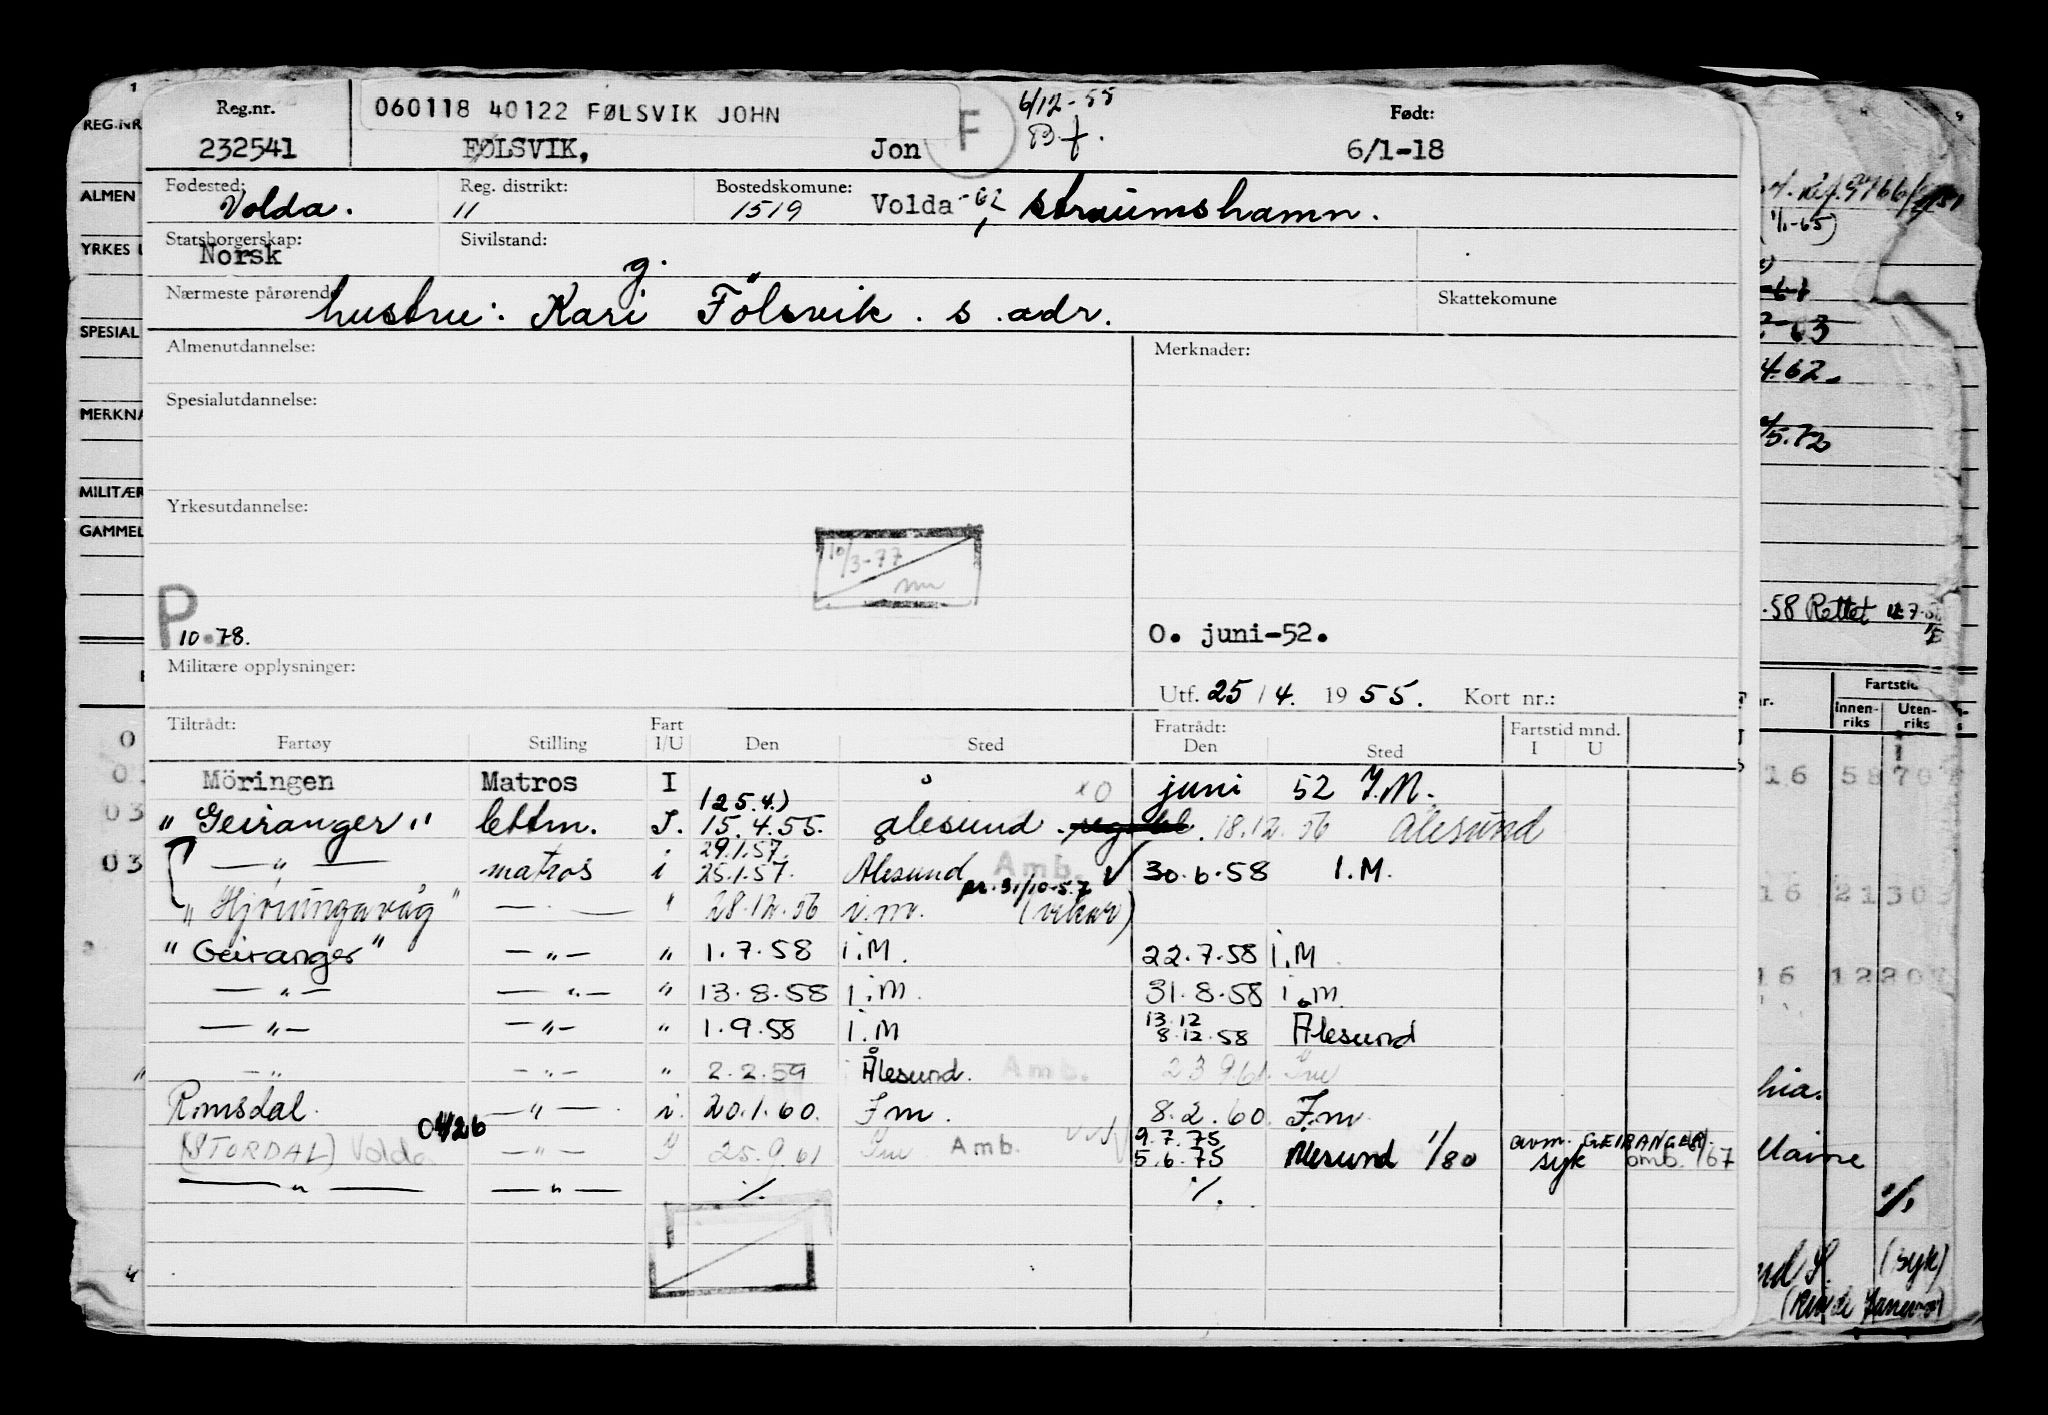 Reg.nr. 060118 40122 FØLSVIK JOHN F 6/12-55 Født:
232541 FØLSVIK, Jon Bf. 6/1-18
Fødested: Reg. distrikt: Bostedskomune:
Volda. 11 1519 Volda -62, straumshamn.
Statsborgerskap: Sivilstand:
Norsk g.
Nærmeste pårørende Skattekomune
hustru: Kari Fölsvik. s. adr.
Almenutdannelse: Merknader:
Spesialutdannelse:
Yrkesutdannelse:
10/3-77
P 10.78. O. juni-52.
Militære opplysninger:
Utf. 25/4. 1955. Kort nr.:
Tiltrådt: Fart Fratrådt: Fartstid mnd.
Fartøy Stilling I/U Den Sted Den Sted I U
Möringen Matros I juni 52 I.M.
(25.4.)
"Geiranger" lettm. I. 15.4.55. Ålesund. 18.12.56 Ålesund
29.1.57.
03 —"— matros i 25.1.57. Ålesund Amb. 30.6.58 I.M.
pr. 31/10-57
"Hjörungavåg" —.— " 28.12.56 i.m. (vikar)
"Geiranger" —"— " 1.7.58 i.M. 22.7.58 i.M
—"— —"— " 13.8.58 i.M. 31.8.58 i.M.
13.12
—"— —"— " 1.9.58 i.M 8.12.58 Ålesund
" —"— —"— " 2.2.59 Ålesund. Amb. 23.9.61. Im
Romsdal. —"— i. 20.1.60. Im. 8.2.60 I.m.
0426 9.7.75 avm. GEIRANGER
(STORDAL) Volda —"— I 25.9.61 Im Amb. 5.6.75 Ålesund 1/80 syk omb. /67
—"— —"— %. %.
REG.NR
ALMEN
YRKES
SPESIAL
MERKNA
MILITÆR
GAMMEL
(1/1-65)
63
4.62.
5.72
.58 Rettet
Fartstid
Innen-riks Uten-riks
16 5870
16 2130
16 1220
hia.
Maine
%
(syk)
(Rio de Janeiro)